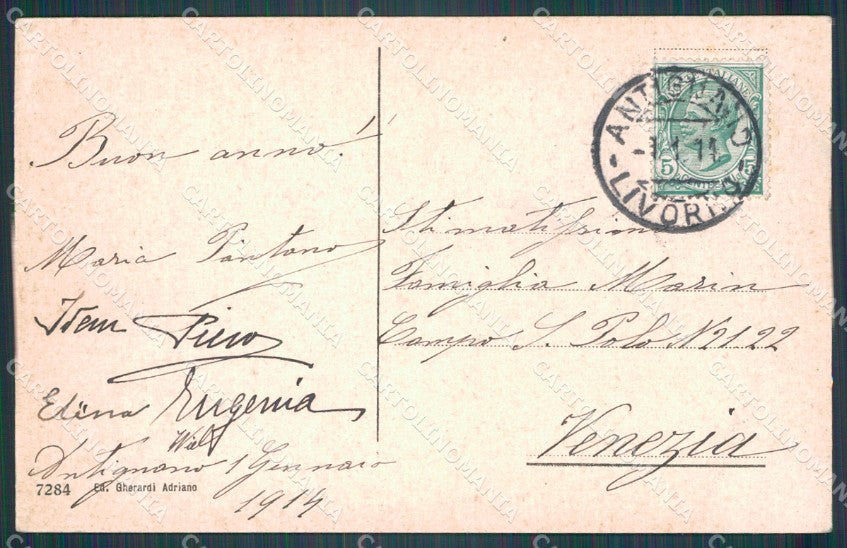 Buon anno!
Maria Pântano
Idem Piero
Elina Eugenia
Antignano 1 Gennaio
1914
7284 Ed. Gherardi Adriano
ITALIANE
5 5
CENT
ANTIGNANO
-1.1.14
LIVORNO
Stimatissima
Famiglia Marin
Campo S. Polo N 2122
Venezia
CARTOLINOMANIA